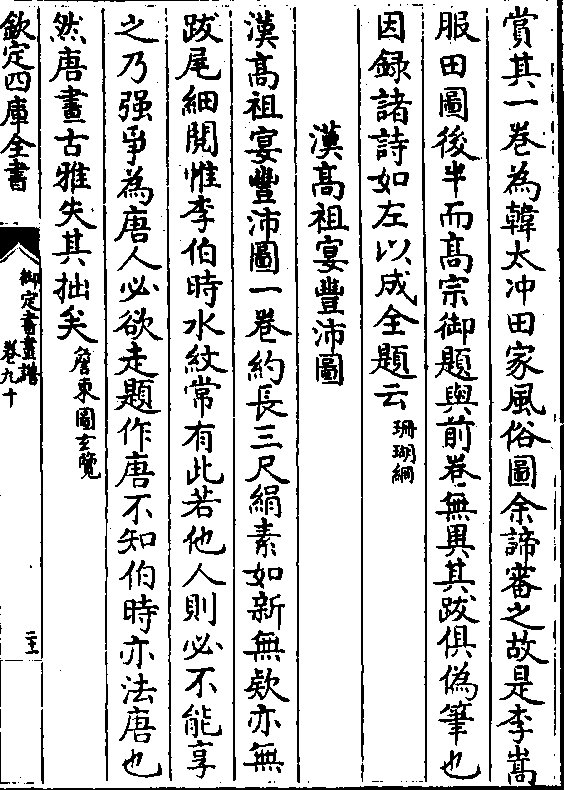 賞其一卷為韓太冲田家風俗圖余諦審之故是李嵩
服田圖後半而髙宗御題與前卷無異其跋俱偽筆也
因録諸詩如左以成全題云珊瑚網
漢髙祖宴豐沛圖
漢髙祖宴豐沛圖一卷約長三尺絹素如新無欵亦無
跋尾細閲惟李伯時水紋常有此若他人則必不能享
之乃强爭為唐人必欲走題作唐不知伯時亦法唐也
然唐畫古雅失其拙矣詹東圖玄覽
欽定四庫全書
御定書畫譜
卷九十